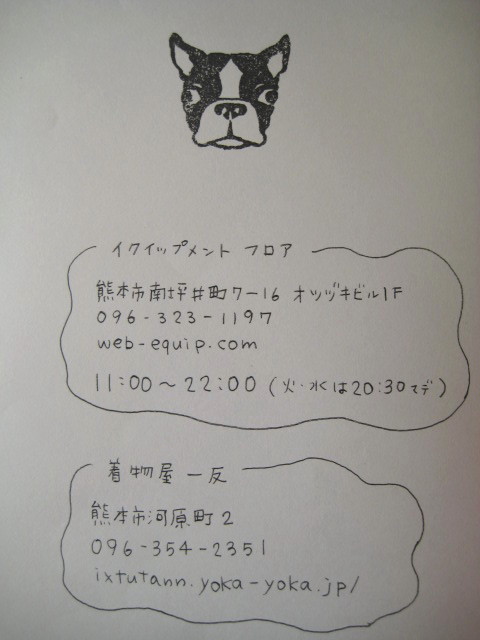 イクイップメント フロア
熊本市南坪井町7-16 オツヅキビル1F
096-323-1197
web-equip.com
11:00〜22:00 (火・水は20:30マデ)
着物屋 一反
熊本市河原町2
096-354-2351
ixtutann.yoka-yoka.jp/